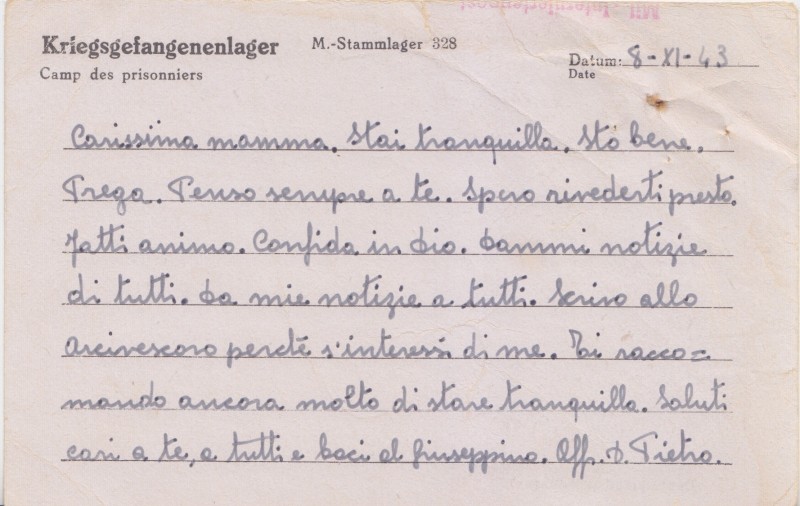 Kriegsgefangenenlager M.-Stammlager 328
Camp des prisonniers
Datum: 8-XI-43
Date
Carissima mamma. Stai tranquilla. Sto bene.
Prega. Penso sempre a te. Spero rivederti presto.
Fatti animo. Confida in Dio. Dammi notizie
di tutti. Da mie notizie a tutti. Scrivo allo
arcivescovo perché s'interessi di me. Ti racco=
mando ancora molto di stare tranquilla. Saluti
cari a te, a tutti e baci al Giuseppino. Aff. D. Pietro.